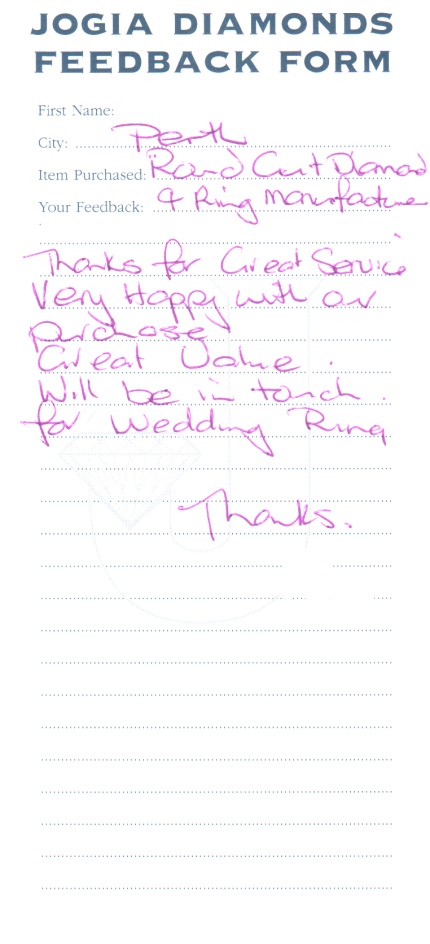 JOGIA DIAMONDS
FEEDBACK FORM
First Name:
City: Perth
Item Purchased: Round Cut Diamond
Your Feedback: & Ring Manufacture
Thanks for Great Service
Very Happy with our
purchase
Great Value.
Will be in touch.
for Wedding Ring
Thanks.